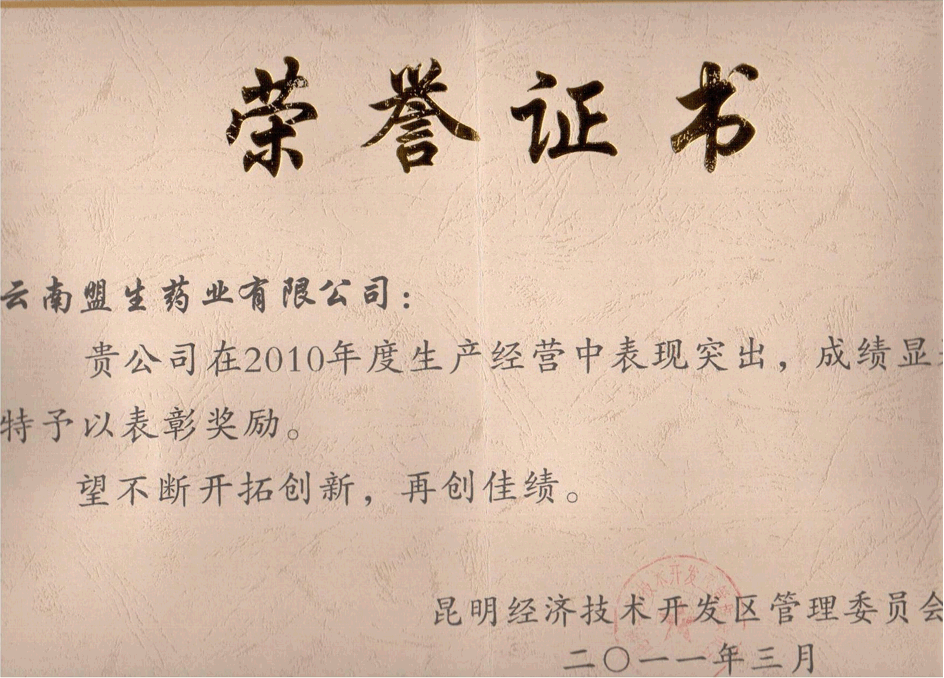 荣誉证书
云南盟生药业有限公司：
贵公司在2010年度生产经营中表现突出，成绩显
特予以表彰奖励。
望不断开拓创新，再创佳绩。
技术开发
昆明经济技术开发区管理委员会
二〇一一年三月